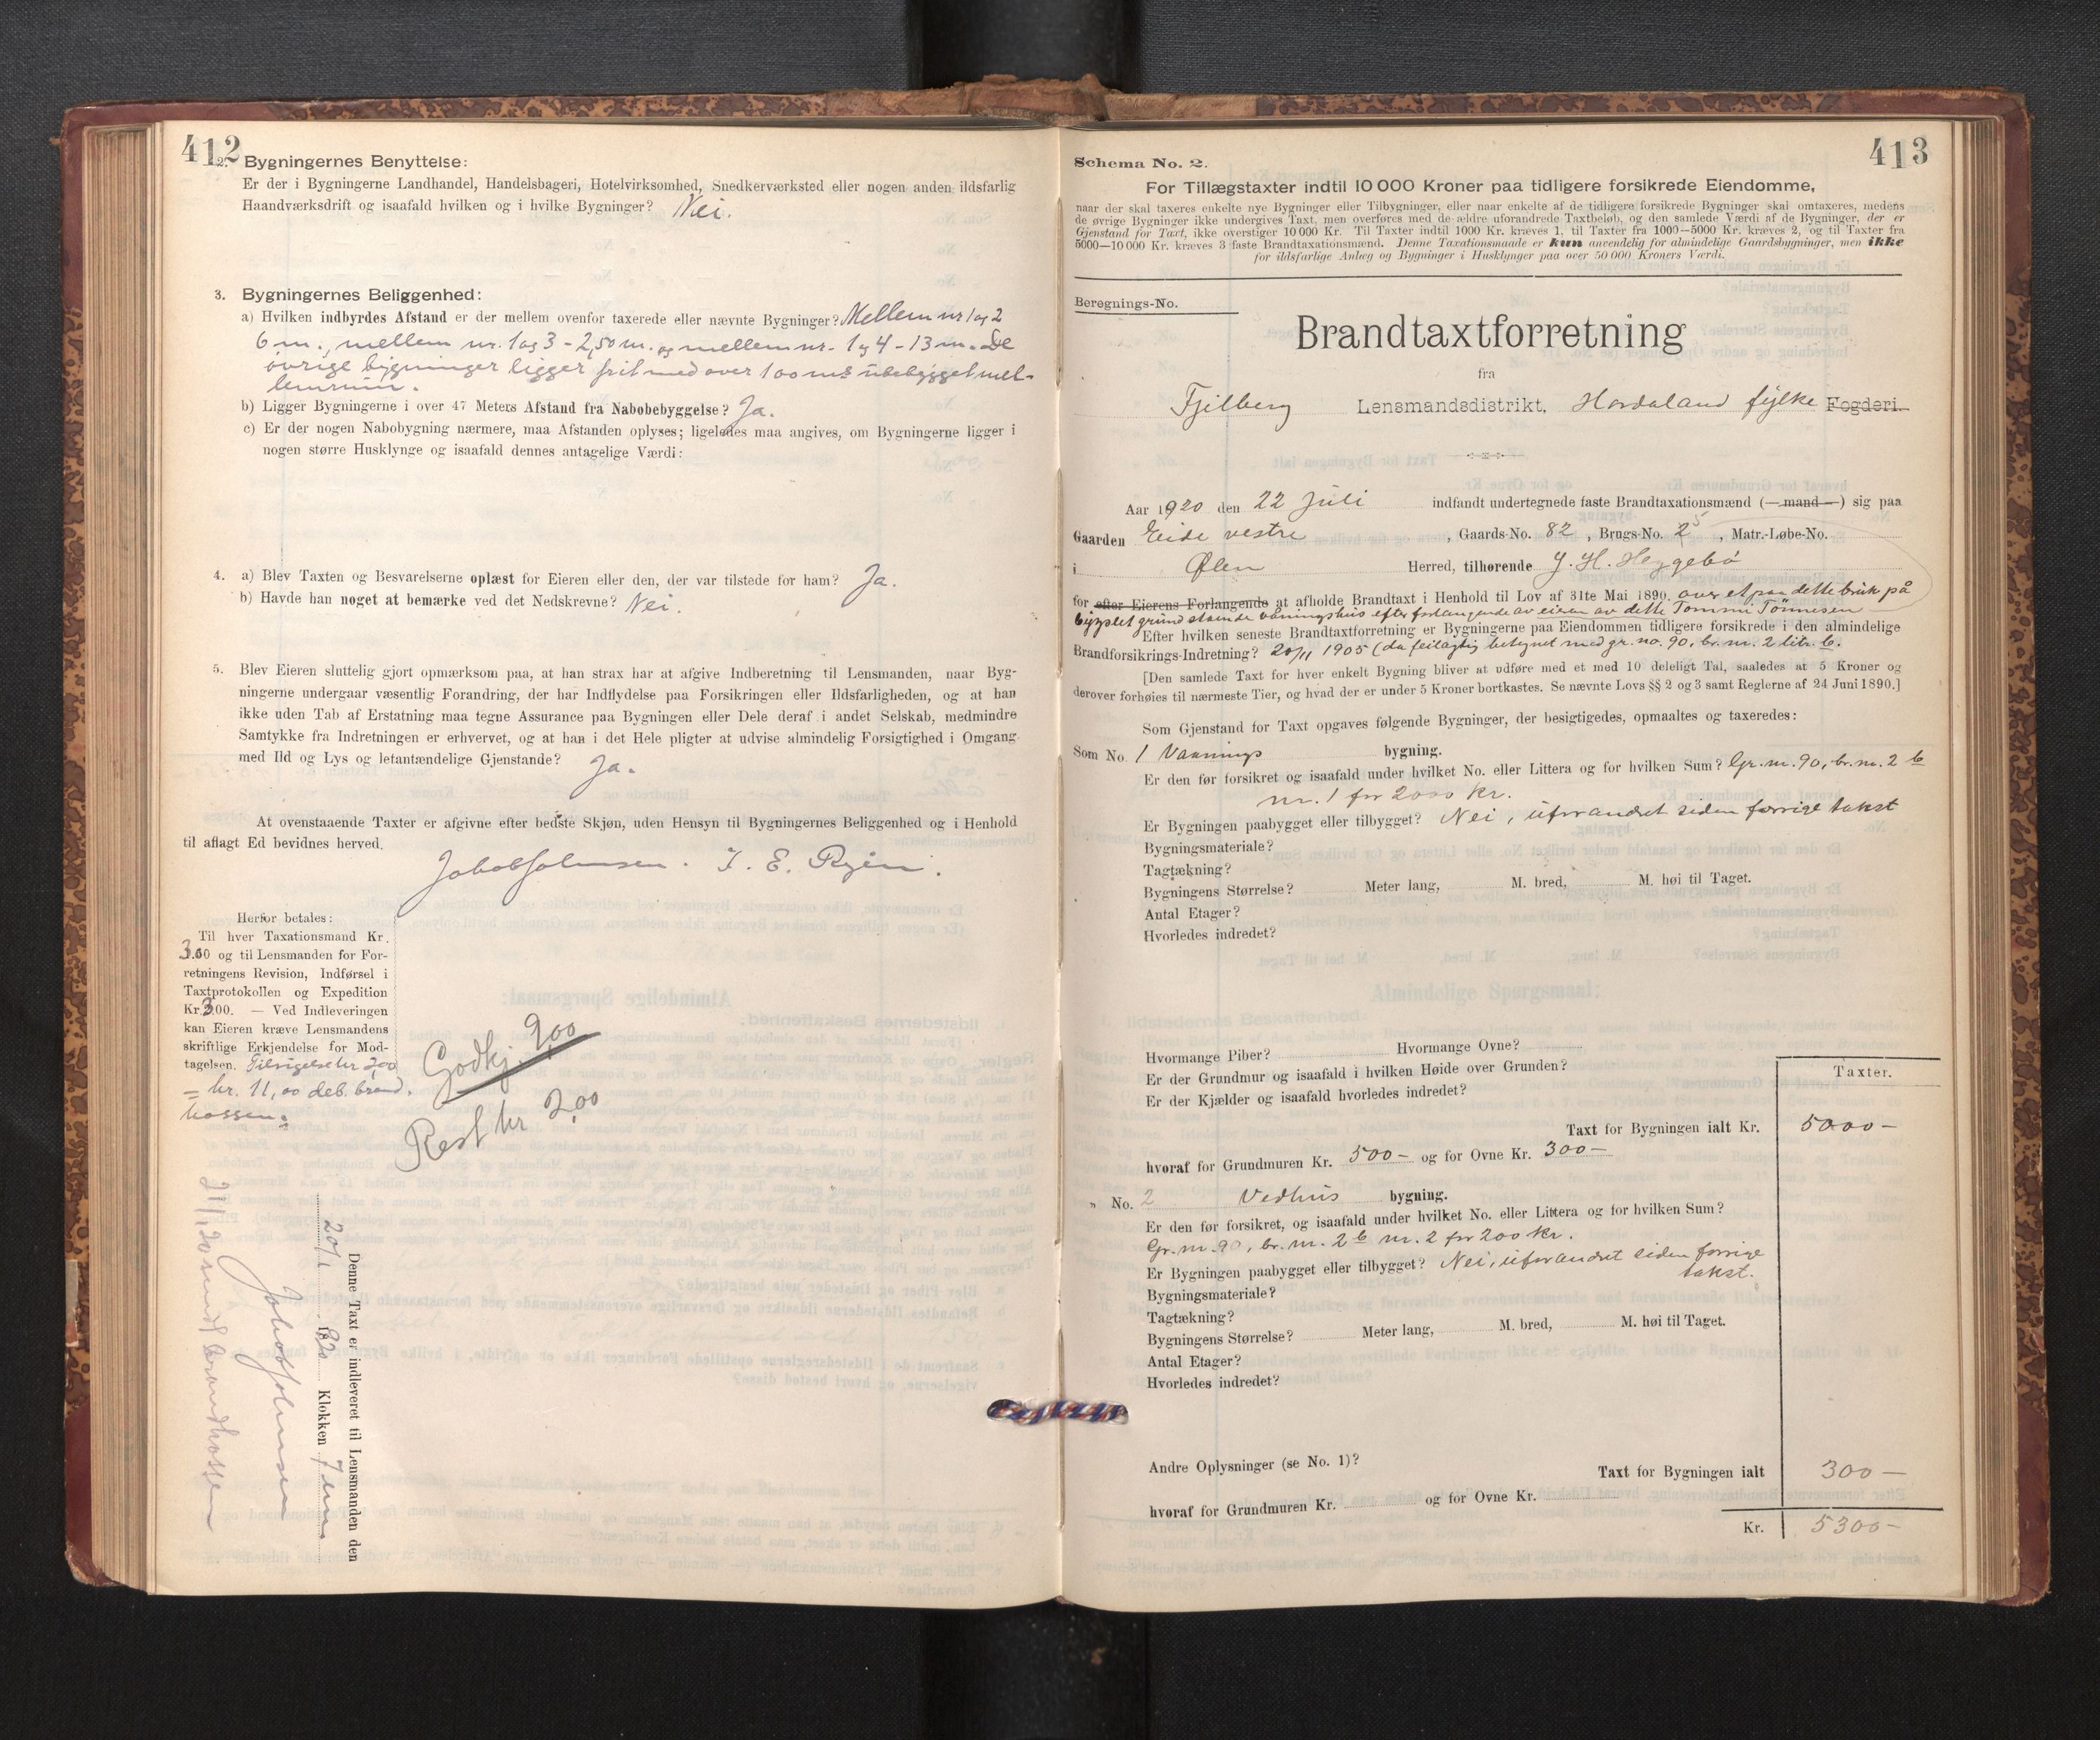 412
2. Bygningernes Benyttelse:
Er der i Bygningerne Landhandel, Handelsbageri, Hotelvirksomhed, Snedkerværksted eller nogen anden ildsfarlig
Haandværksdrift og isaafald hvilken og i hvilke Bygninger? Nei.
3. Bygningernes Beliggenhed:
a) Hvilken indbyrdes Afstand er der mellem ovenfor taxerede eller nævnte Bygninger? Mellem nr 1 og 2
6 m., mellem nr. 1 og 3 - 2,50 m. og mellem nr. 1 og 4 - 13 m. De
øvrige bygninger ligger frit med over 100 ms ubebygget mel-
lemrum.
b) Ligger Bygningerne i over 47 Meters Afstand fra Nabobebyggelse? Ja.
c) Er der nogen Nabobygning nærmere, maa Afstanden oplyses; ligeledes maa angives, om Bygningerne ligger i
nogen større Husklynge og isaafald dennes antagelige Værdi:
4. a) Blev Taxten og Besvarelserne oplæst for Eieren eller den, der var tilstede for ham? Ja.
b) Havde han noget at bemærke ved det Nedskrevne? Nei.
5. Blev Eieren sluttelig gjort opmærksom paa, at han strax har at afgive Indberetning til Lensmanden, naar Byg-
ningerne undergaar væsentlig Forandring, der har Indflydelse paa Forsikringen eller Ildsfarligheden, og at han
ikke uden Tab af Erstatning maa tegne Assurance paa Bygningen eller Dele deraf i andet Selskab, medmindre
Samtykke fra Indretningen er erhvervet, og at han i det Hele pligter at udvise almindelig Forsigtighed i Omgang
med Ild og Lys og letantændelige Gjenstande? Ja.
At ovenstaaende Taxter er afgivne efter bedste Skjøn, uden Hensyn til Bygningernes Beliggenhed og i Henhold
til aflagt Ed bevidnes herved.
Jakob Johnsen. I. E.
Herfor betales:
Til hver Taxationsmand Kr.
3.00 og til Lensmanden for For-
retningens Revision, Indførsel i
Taxtprotokollen og Expedition
Kr. 3.00. — Ved Indleveringen
kan Eieren kræve Lensmandens
skriftlige Erkjendelse for Mod-
tagelsen. Tilsigelse kr 2,00
= kr. 11,00 deb. brand.
kassen.
Godkj. 9,00
Rest kr 2,00
Denne Taxt er indleveret til Lensmanden den
1820 Klokken 7 em.
Jakob Johnsen
413
Schema No. 2.
For Tillægstaxter indtil 10 000 Kroner paa tidligere forsikrede Eiendomme,
naar der skal taxeres enkelte nye Bygninger eller Tilbygninger, eller naar enkelte af de tidligere forsikrede Bygninger skal omtaxeres, medens
de øvrige Bygninger ikke undergives Taxt, men overføres med de ældre uforandrede Taxtbeløb, og den samlede Værdi af de Bygninger, der er
Gjenstand for Taxt, ikke overstiger 10 000 Kr. Til Taxter indtil 1000 Kr. kræves 1, til Taxter fra 1000—5000 Kr. kræves 2, og til Taxter fra
5000—10 000 Kr. kræves 3 faste Brandtaxationsmænd. Denne Taxationsmaade er kun anvendelig for almindelige Gaardsbygninger, men ikke
for ildsfarlige Anlæg og Bygninger i Husklynger paa over 50 000 Kroners Værdi.
Beregnings-No.
Brandtaxtforretning
fra
Fjelberg Lensmandsdistrikt, Hordaland fylke Fogderi.
Aar 1920 den 22 Juli indfandt undertegnede faste Brandtaxationsmænd (—mand—) sig paa
Gaarden Eide vestre, Gaards-No. 82, Brugs-No. 25, Matr.-Løbe-No.
i Ølen Herred, tilhørende J. H. Heggebø
for efter Eierens Forlangende at afholde Brandtaxt i Henhold til Lov af 31te Mai 1890. over et paa dette bruk på
bygslet grund staaende vaaningshus efter forlangende av eieren av dette Tommi Tönnesen
Efter hvilken seneste Brandtaxtforretning er Bygningerne paa Eiendommen tidligere forsikrede i den almindelige
Brandforsikrings-Indretning? 20/11 1905 (da feilagtig betegnet med gr. no. 90, br. nr. 2 litr. b.
[Den samlede Taxt for hver enkelt Bygning bliver at udføre med et med 10 deleligt Tal, saaledes at 5 Kroner og
derover forhøies til nærmeste Tier, og hvad der er under 5 Kroner bortkastes. Se nævnte Lovs §§ 2 og 3 samt Reglerne af 24 Juni 1890.]
Som Gjenstand for Taxt opgaves følgende Bygninger, der besigtigedes, opmaaltes og taxeredes:
Som No. 1 Vaanings bygning.
Er den før forsikret og isaafald under hvilket No. eller Littera og for hvilken Sum? Gr. nr. 90, br. nr. 2 b
nr. 1 for 2000 kr.
Er Bygningen paabygget eller tilbygget? Nei, uforandret siden forrige takst
Bygningsmateriale?
Tagtækning?
Bygningens Størrelse? Meter lang, M. bred, M. høi til Taget.
Antal Etager?
Hvorledes indredet?
Hvormange Piber? Hvormange Ovne?
Er der Grundmur og isaafald i hvilken Høide over Grunden?
Er der Kjælder og isaafald hvorledes indredet?
Taxter.
Taxt for Bygningen ialt Kr. 5000 —
hvoraf for Grundmuren Kr. 500 — og for Ovne Kr. 300 —
„ No. 2 Vedhus bygning.
Er den før forsikret, og isaafald under hvilket No. eller Littera og for hvilken Sum?
Gr. nr. 90, br. nr. 2 b nr. 2 for 200 kr.
Er Bygningen paabygget eller tilbygget? Nei, uforandret siden forrige
takst.
Bygningsmateriale?
Tagtækning?
Bygningens Størrelse? Meter lang, M. bred, M. høi til Taget.
Antal Etager?
Hvorledes indredet?
Andre Oplysninger (se No. 1)?
Taxt for Bygningen ialt 300 —
hvoraf for Grundmuren Kr. og for Ovne Kr.
Kr. 5300 —